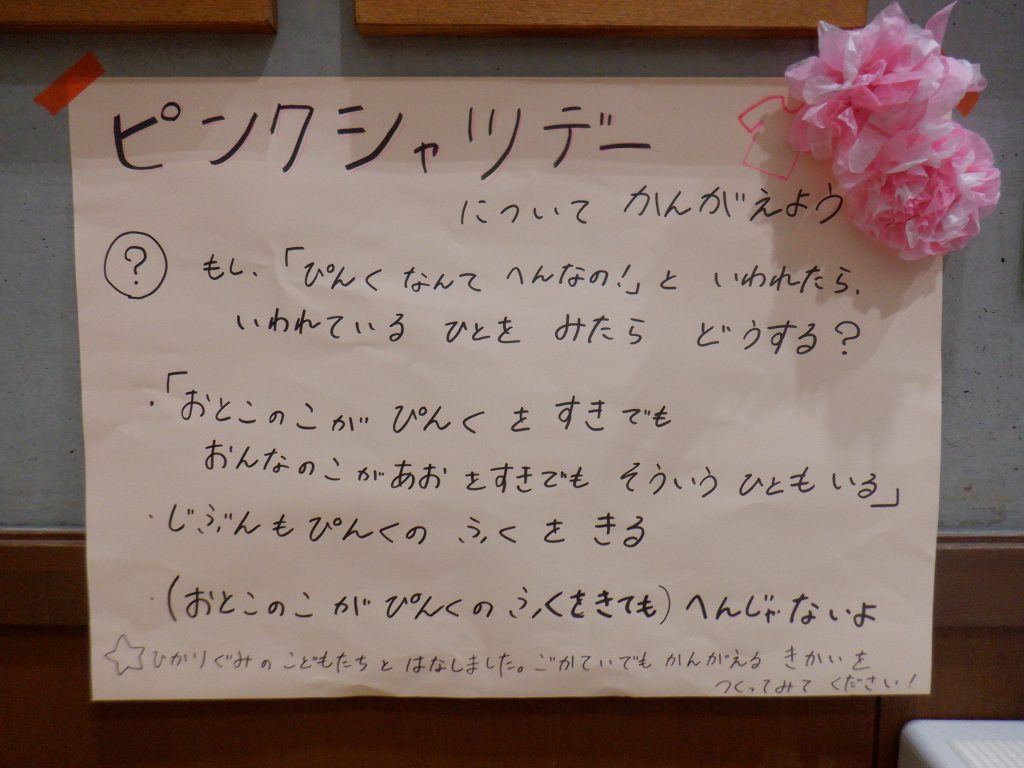 ピンクシャツデー
について かんがえよう
? もし、「ぴんく なんて へんなの!」と いわれたら、
いわれている ひとを みたら どうする?
・「おとこのこが ぴんく を すきでも
おんなのこがあお をすきでも そういう ひともいる」
・じぶんもぴんくの ふくを きる
・(おとこのこ が ぴんくの ふくをきても) へんじゃないよ
☆ひかりぐみの こどもたちと はなしました。ごかていでも かんがえる きかいを
つくってみて ください!